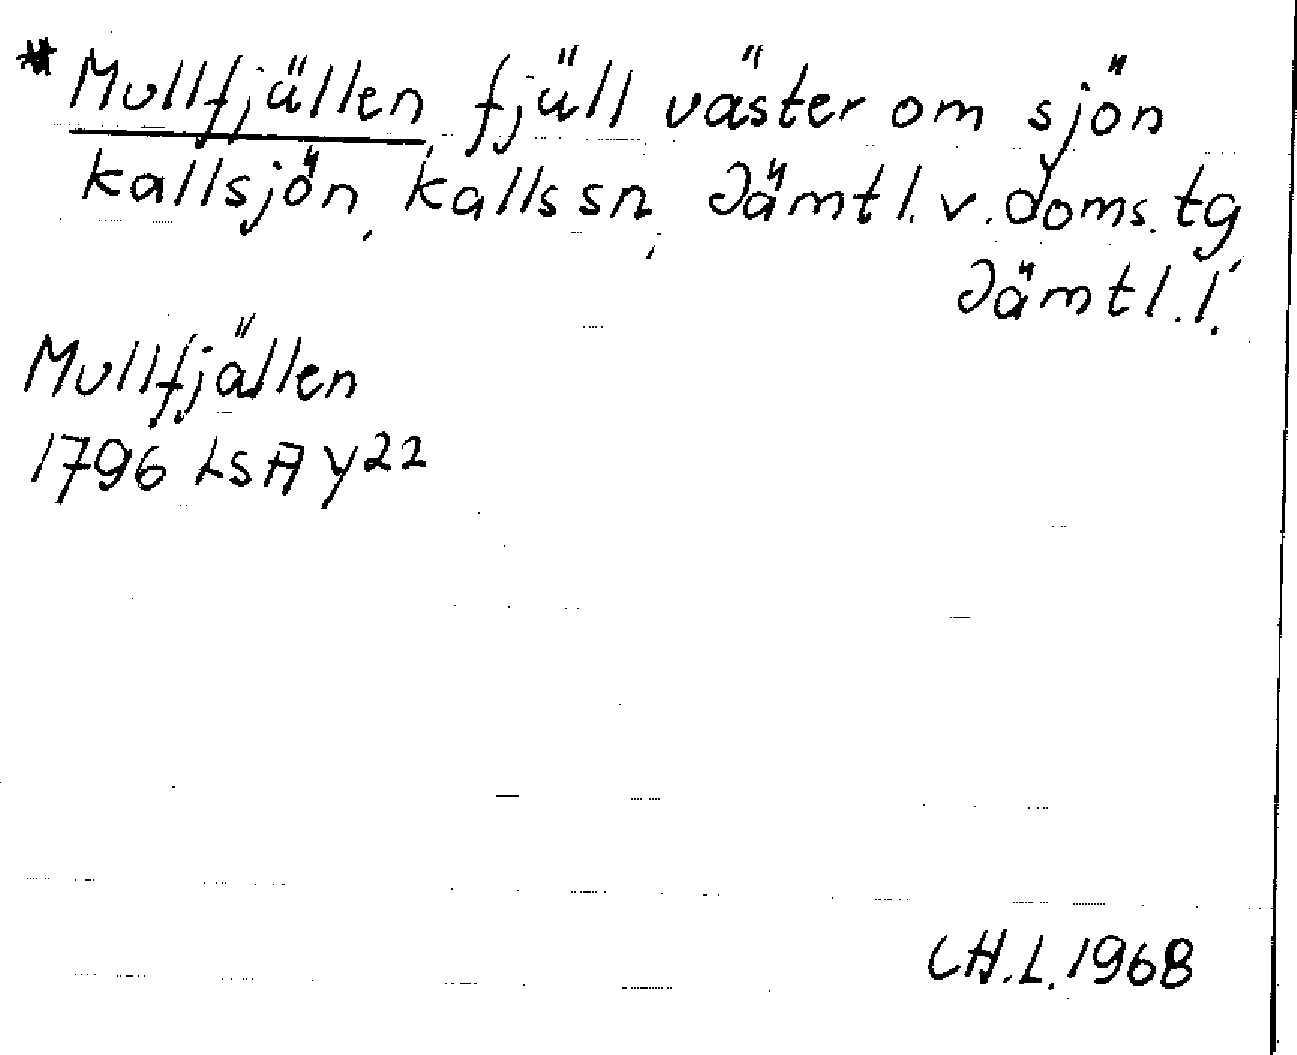 * Mullfjällen, fjäll väster om sjön
kallsjön, kalls sn, Jämtl. v. doms. tg,
Jämtl. l.
Mullfjällen
1796 LSA Y22
CH.L. 1968